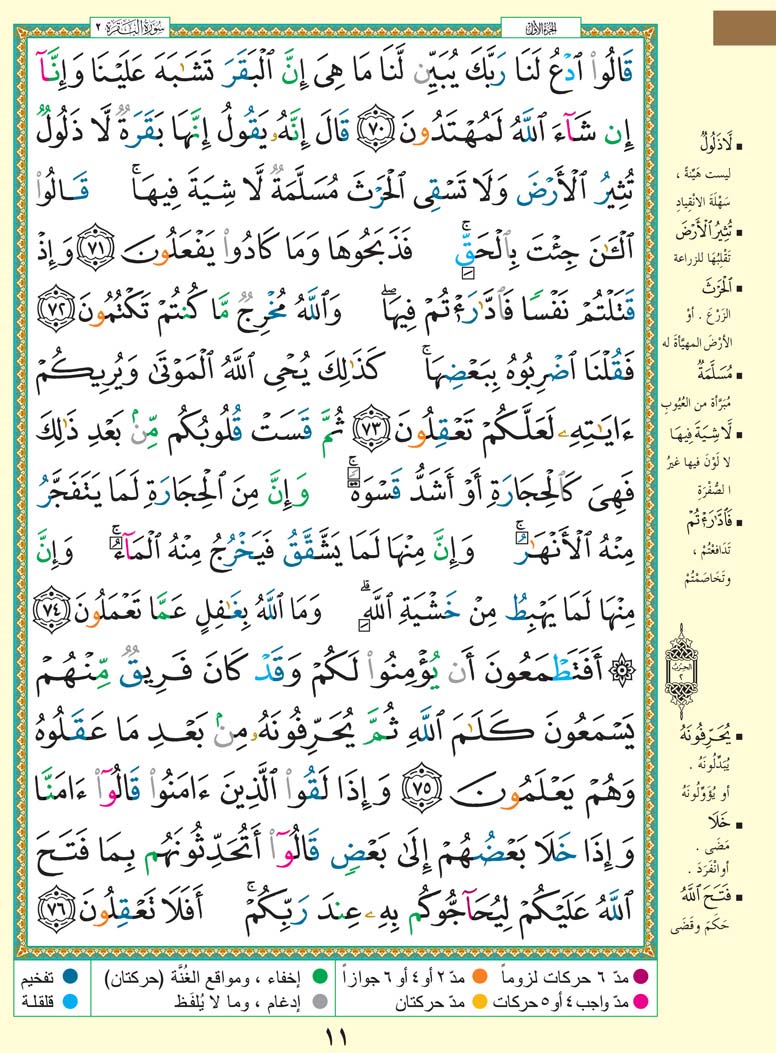 سُورَةُ البَقَرَة ٢
الجزء الأول
قَالُوا۟ ٱدْعُ لَنَا رَبَّكَ يُبَيِّن لَّنَا مَا هِىَ إِنَّ ٱلْبَقَرَ تَشَـٰبَهَ عَلَيْنَا وَإِنَّآ
إِن شَآءَ ٱللَّهُ لَمُهْتَدُونَ ٧٠ قَالَ إِنَّهُۥ يَقُولُ إِنَّهَا بَقَرَةٌ لَّا ذَلُولٌ
تُثِيرُ ٱلْأَرْضَ وَلَا تَسْقِى ٱلْحَرْثَ مُسَلَّمَةٌ لَّا شِيَةَ فِيهَا ۚ قَـالُوا۟
ٱلْـَٔـٰنَ جِئْتَ بِٱلْحَقِّ ۚ فَذَبَحُوهَا وَمَا كَادُوا۟ يَفْعَلُونَ ٧١ وَإِذْ
قَتَلْتُمْ نَفْسًا فَٱدَّٰرَْٰٔتُمْ فِيهَا ۖ وَٱللَّهُ مُخْرِجٌ مَّا كُنتُمْ تَكْتُمُونَ ٧٢
فَقُلْنَا ٱضْرِبُوهُ بِبَعْضِهَا ۚ كَذَٰلِكَ يُحْىِ ٱللَّهُ ٱلْمَوْتَىٰ وَيُرِيكُمْ
ءَايَـٰتِهِۦ لَعَلَّكُمْ تَعْقِلُونَ ٧٣ ثُمَّ قَسَتْ قُلُوبُكُم مِّنۢ بَعْدِ ذَٰلِكَ
فَهِىَ كَٱلْحِجَارَةِ أَوْ أَشَدُّ قَسْوَةً ۚ وَإِنَّ مِنَ ٱلْحِجَارَةِ لَمَا يَتَفَجَّرُ
مِنْهُ ٱلْأَنْهَـٰرُ ۚ وَإِنَّ مِنْهَا لَمَا يَشَّقَّقُ فَيَخْرُجُ مِنْهُ ٱلْمَآءُ ۚ وَإِنَّ
مِنْهَا لَمَا يَهْبِطُ مِنْ خَشْيَةِ ٱللَّهِ ۗ وَمَا ٱللَّهُ بِغَـٰفِلٍ عَمَّا تَعْمَلُونَ ٧٤
۞ أَفَتَطْمَعُونَ أَن يُؤْمِنُوا۟ لَكُمْ وَقَدْ كَانَ فَرِيقٌ مِّنْهُمْ
يَسْمَعُونَ كَلَـٰمَ ٱللَّهِ ثُمَّ يُحَرِّفُونَهُۥ مِنۢ بَعْدِ مَا عَقَلُوهُ
وَهُمْ يَعْلَمُونَ ٧٥ وَإِذَا لَقُوا۟ ٱلَّذِينَ ءَامَنُوا۟ قَالُوٓا۟ ءَامَنَّا
وَإِذَا خَلَا بَعْضُهُمْ إِلَىٰ بَعْضٍ قَالُوٓا۟ أَتُحَدِّثُونَهُم بِمَا فَتَحَ
ٱللَّهُ عَلَيْكُمْ لِيُحَآجُّوكُم بِهِۦ عِندَ رَبِّكُمْ ۚ أَفَلَا تَعْقِلُونَ ٧٦
▪ لَّا ذَلُولٌ
ليست هَيِّنةً ،
سَهْلَةَ الانْقِيادِ
▪ تُثِيرُ ٱلْأَرْضَ
تَقْلِبُهَا للزراعة
▪ ٱلْحَرْثَ
الزَّرْعَ . أوْ
الأرْضَ المهيَّأةَ له
▪ مُسَلَّمَةٌ
مُبَرَّأة من العُيُوبِ
▪ لَّا شِيَةَ فِيهَا
لا لَوْنَ فيها غيرُ
الصُّفْرَةِ
▪ فَٱدَّٰرَْٰٔتُمْ
تَدَافَعْتُمْ ،
وتَخَاصَمْتُمْ
الحزب
٢
▪ يُحَرِّفُونَهُ
يُبَدِّلُونَهُ .
أو يُؤَوِّلُونَهُ
▪ خَلَا
مَضَى .
أو انْفَرَدَ .
▪ فَتَحَ ٱللَّهُ
حَكَمَ وقَضَى
مدّ ٦ حركات لزوماً مدّ ٢ أو ٤ أو ٦ جوازاً إخفاء ، ومواقع الغُنَّة (حركتان) تفخيم
مدّ واجب ٤ أو ٥ حركات مدّ حركتان إدغام ، وما لا يُلفَظ قلقلة
١١